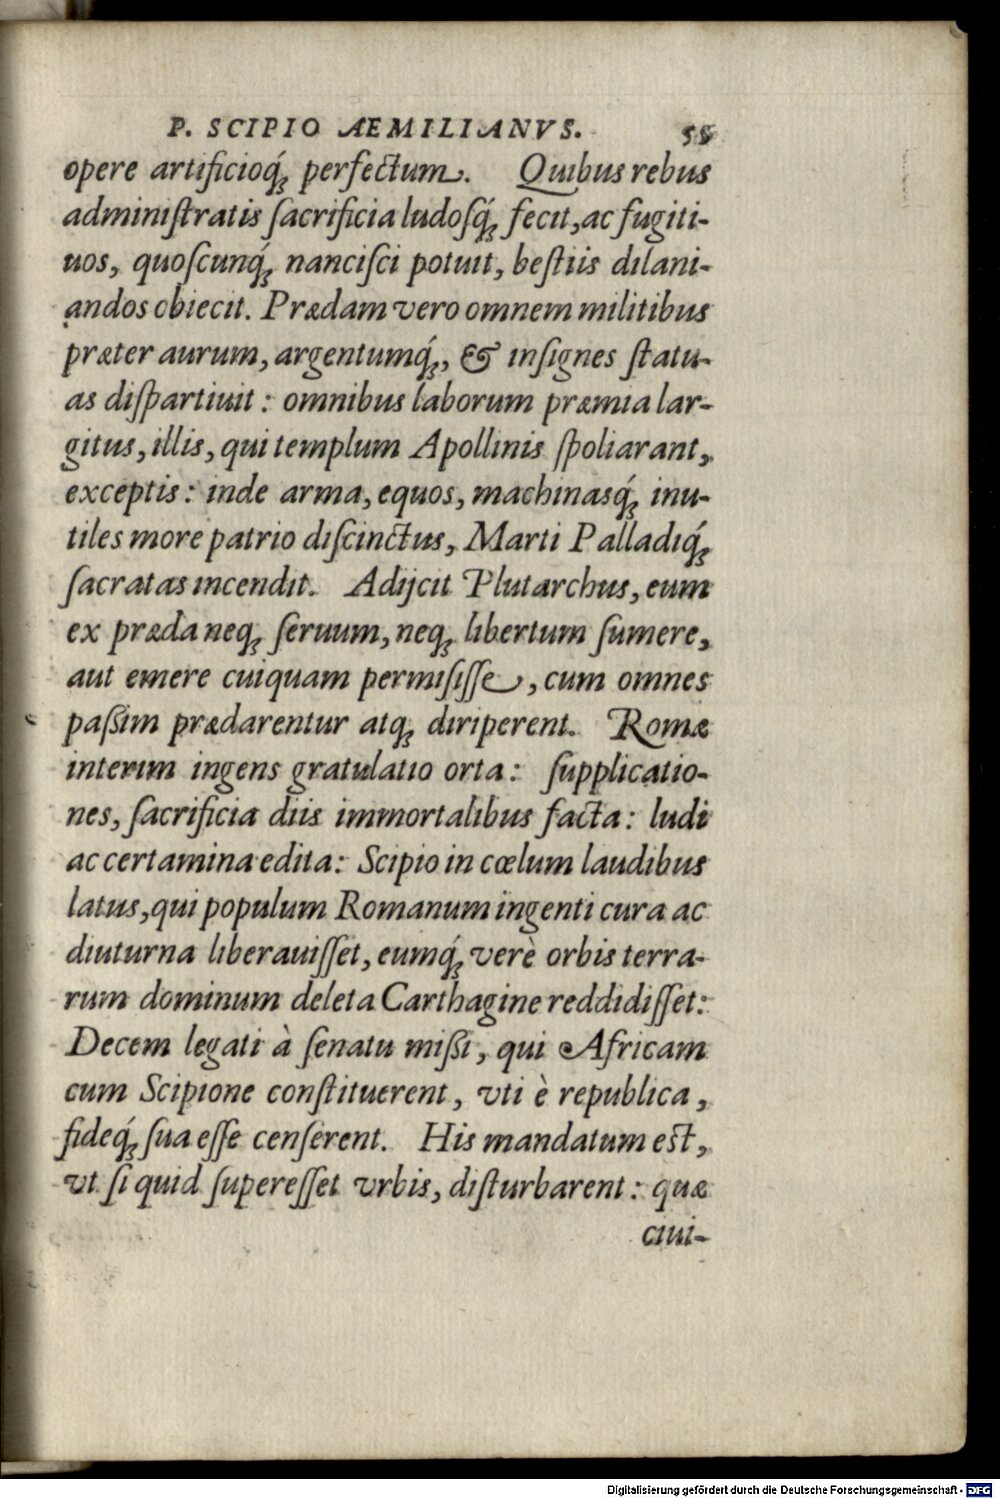 P. SCIPIO AEMILIANVS. 55
opere artificioq́ꝫ perfectum. Quibus rebus
adminiſtratis ſacrificia ludoſq́ꝫ fecit, ac fugiti-
uos, quoſcunq́ꝫ nanciſci potuit, beſtiis dilani-
andos obiecit. Prædam vero omnem militibus
præter aurum, argentumq́ꝫ, & inſignes ſtatu-
as diſpartiuit: omnibus laborum præmia lar-
gitus, illis, qui templum Apollinis ſpoliarant,
exceptis: inde arma, equos, machinasq́ꝫ inu-
tiles more patrio diſcinctus, Marti Palladiq́ꝫ
ſacratas incendit. Adijcit Plutarchus, eum
ex præda neqꝫ ſeruum, neqꝫ libertum ſumere,
aut emere cuiquam permiſiſſe, cum omnes
paßim prædarentur atqꝫ diriperent. Romæ
interim ingens gratulatio orta: ſupplicatio-
nes, ſacrificia diis immortalibus facta: ludi
ac certamina edita: Scipio in cœlum laudibus
latus, qui populum Romanum ingenti cura ac
diuturna liberauiſſet, eumq́ꝫ verè orbis terra-
rum dominum deleta Carthagine reddidiſſet:
Decem legati à ſenatu mißi, qui Africam
cum Scipione conſtituerent, vti è republica,
fideq́ꝫ ſua eſſe cenſerent. His mandatum eſt,
vt ſi quid ſupereſſet vrbis, diſturbarent: quæ
ciui-
Digitalisierung gefördert durch die Deutsche Forschungsgemeinschaft - DFG